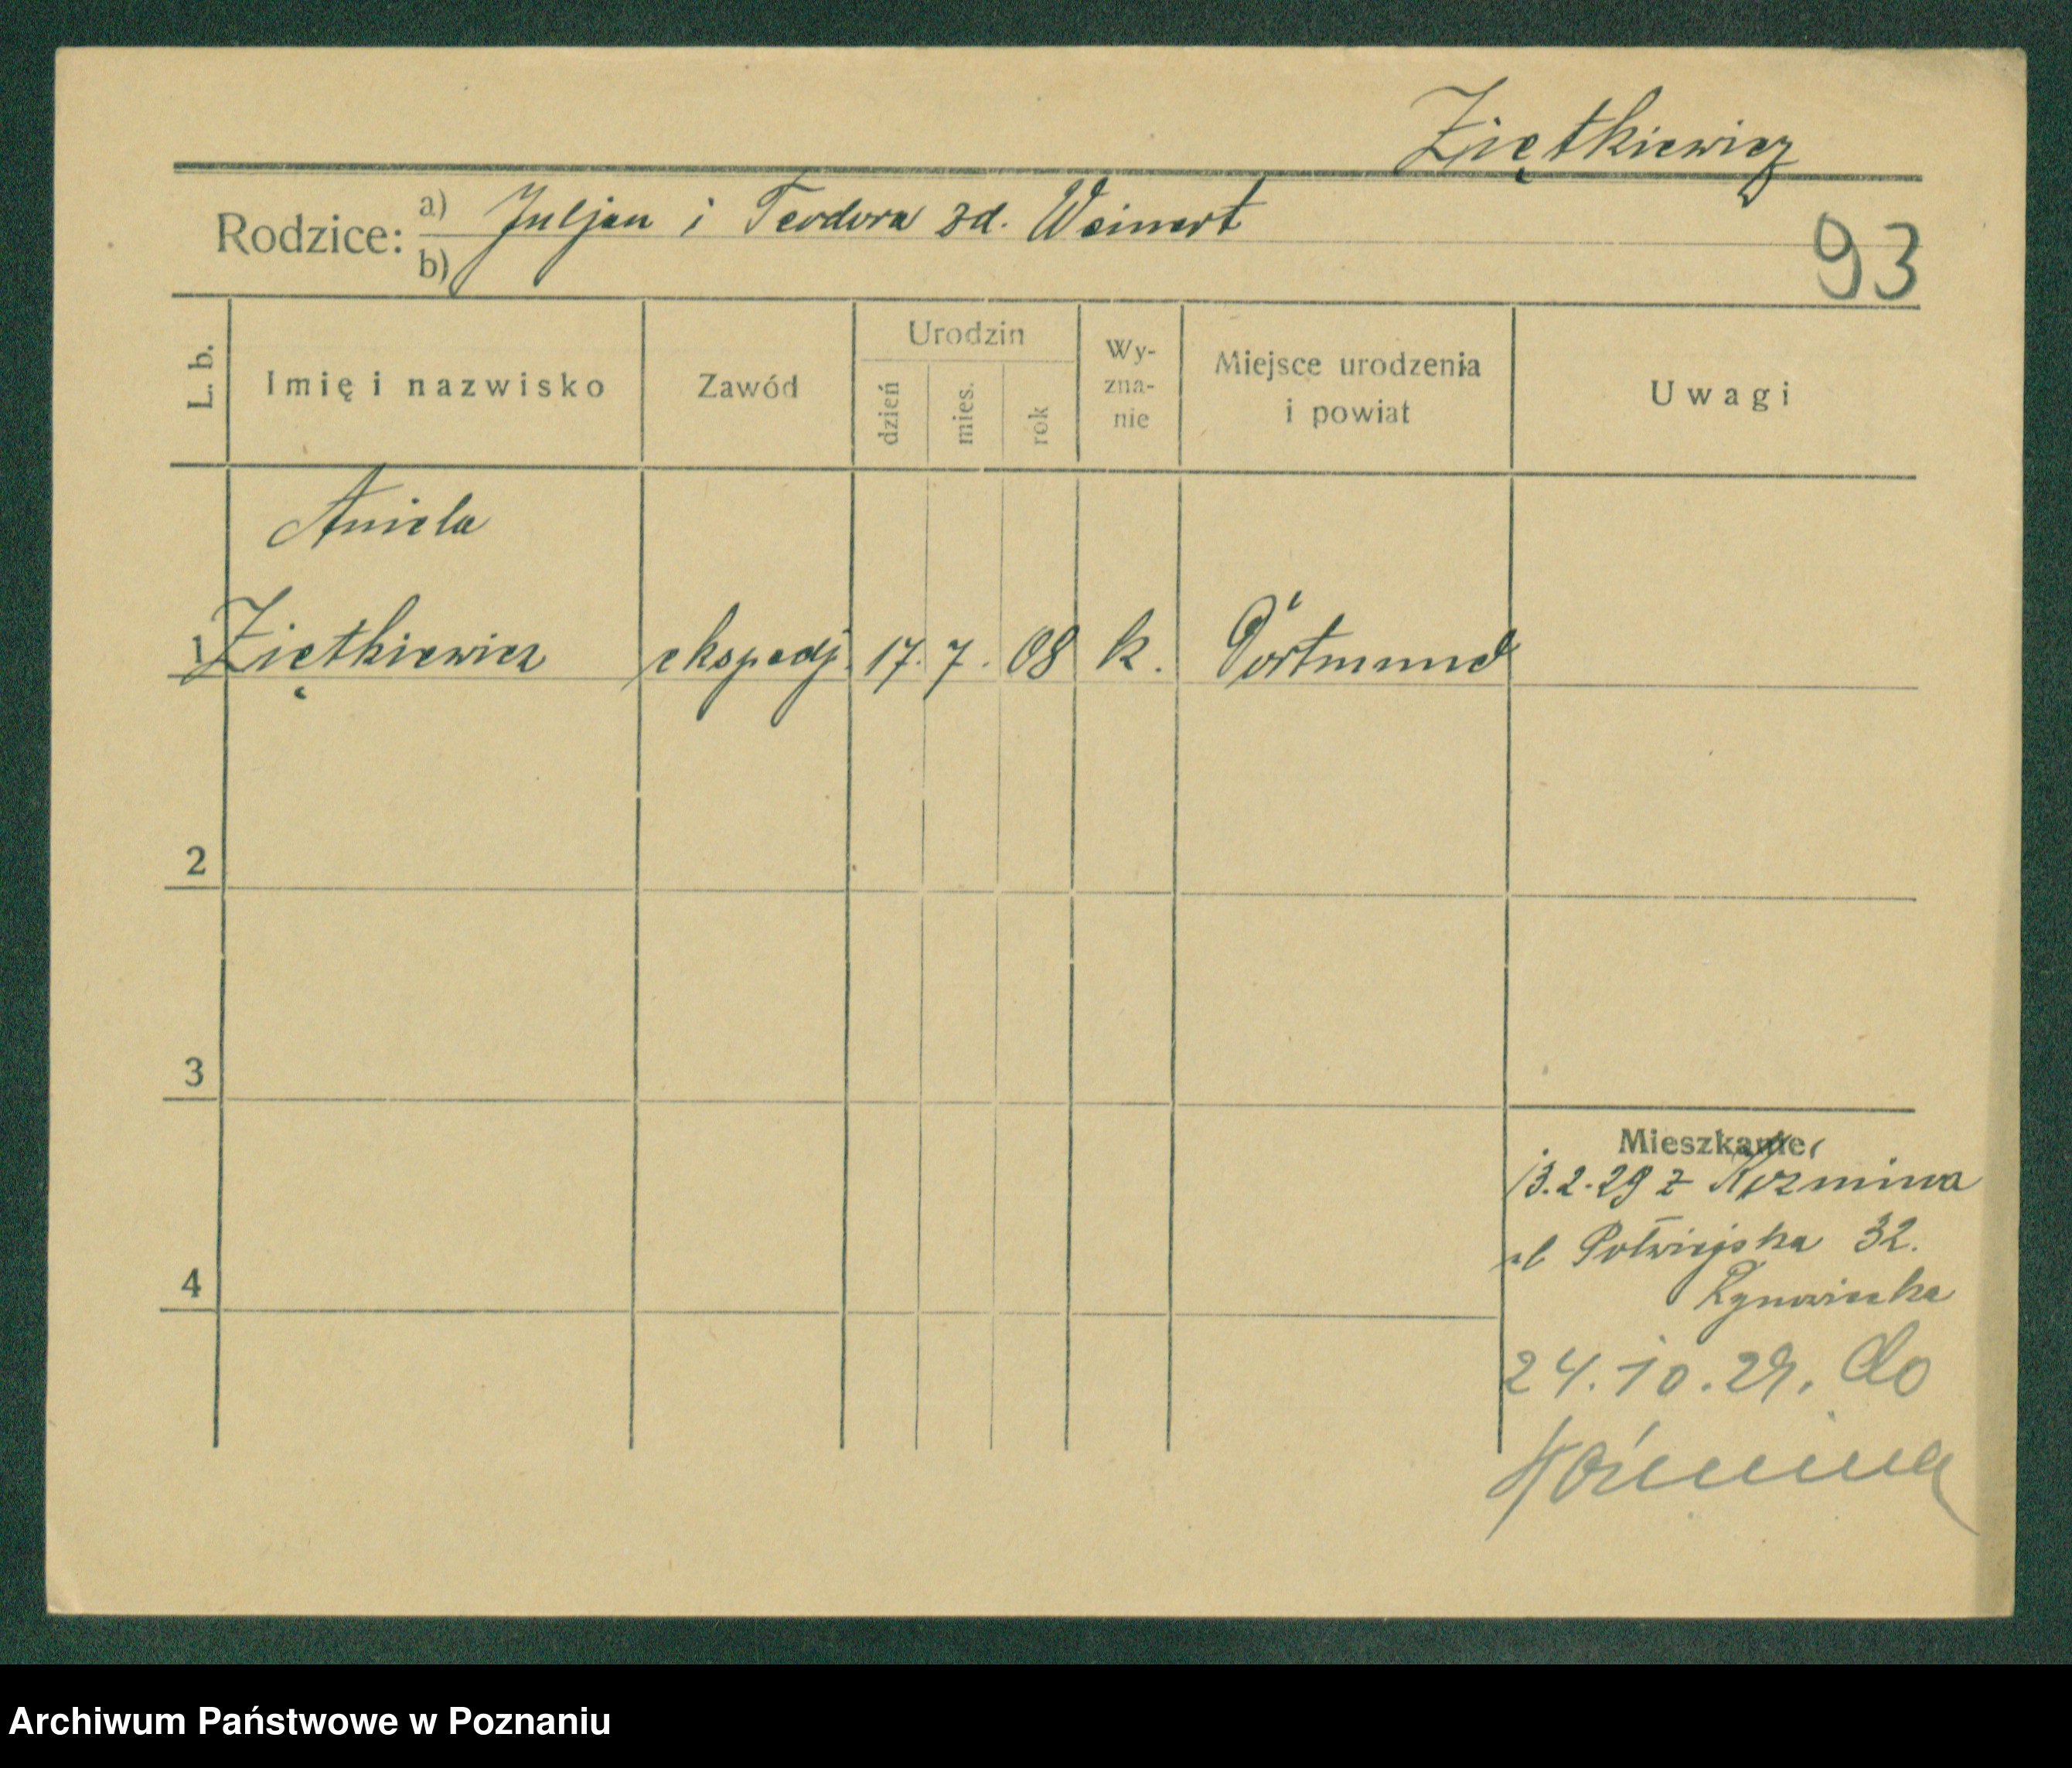 Ziętkiewicz
Rodzice: a) Juljan i Teodora zd. Weinert
b)
93
L. b.
Imię i nazwisko
Zawód
Urodzin
dzień
mies.
rok
Wy-
zna-
nie
Miejsce urodzenia
i powiat
Uwagi
Aniela
1 Ziętkiewicz ekspedj. 17. 7. 08 k. Dortmund
2
3
Mieszkanie
13.2.29 z Kozmina
ul Półwiejska 32.
4
24.10.29. do
Koźmina
Archiwum Państwowe w Poznaniu